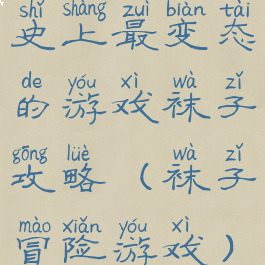 shǐ shàng zuì biàn tài
史上最变态
de yóu xì wà zǐ
的游戏袜子
gōng lüè wà zǐ
攻略（袜子
mào xiǎn yóu xì
冒险游戏）